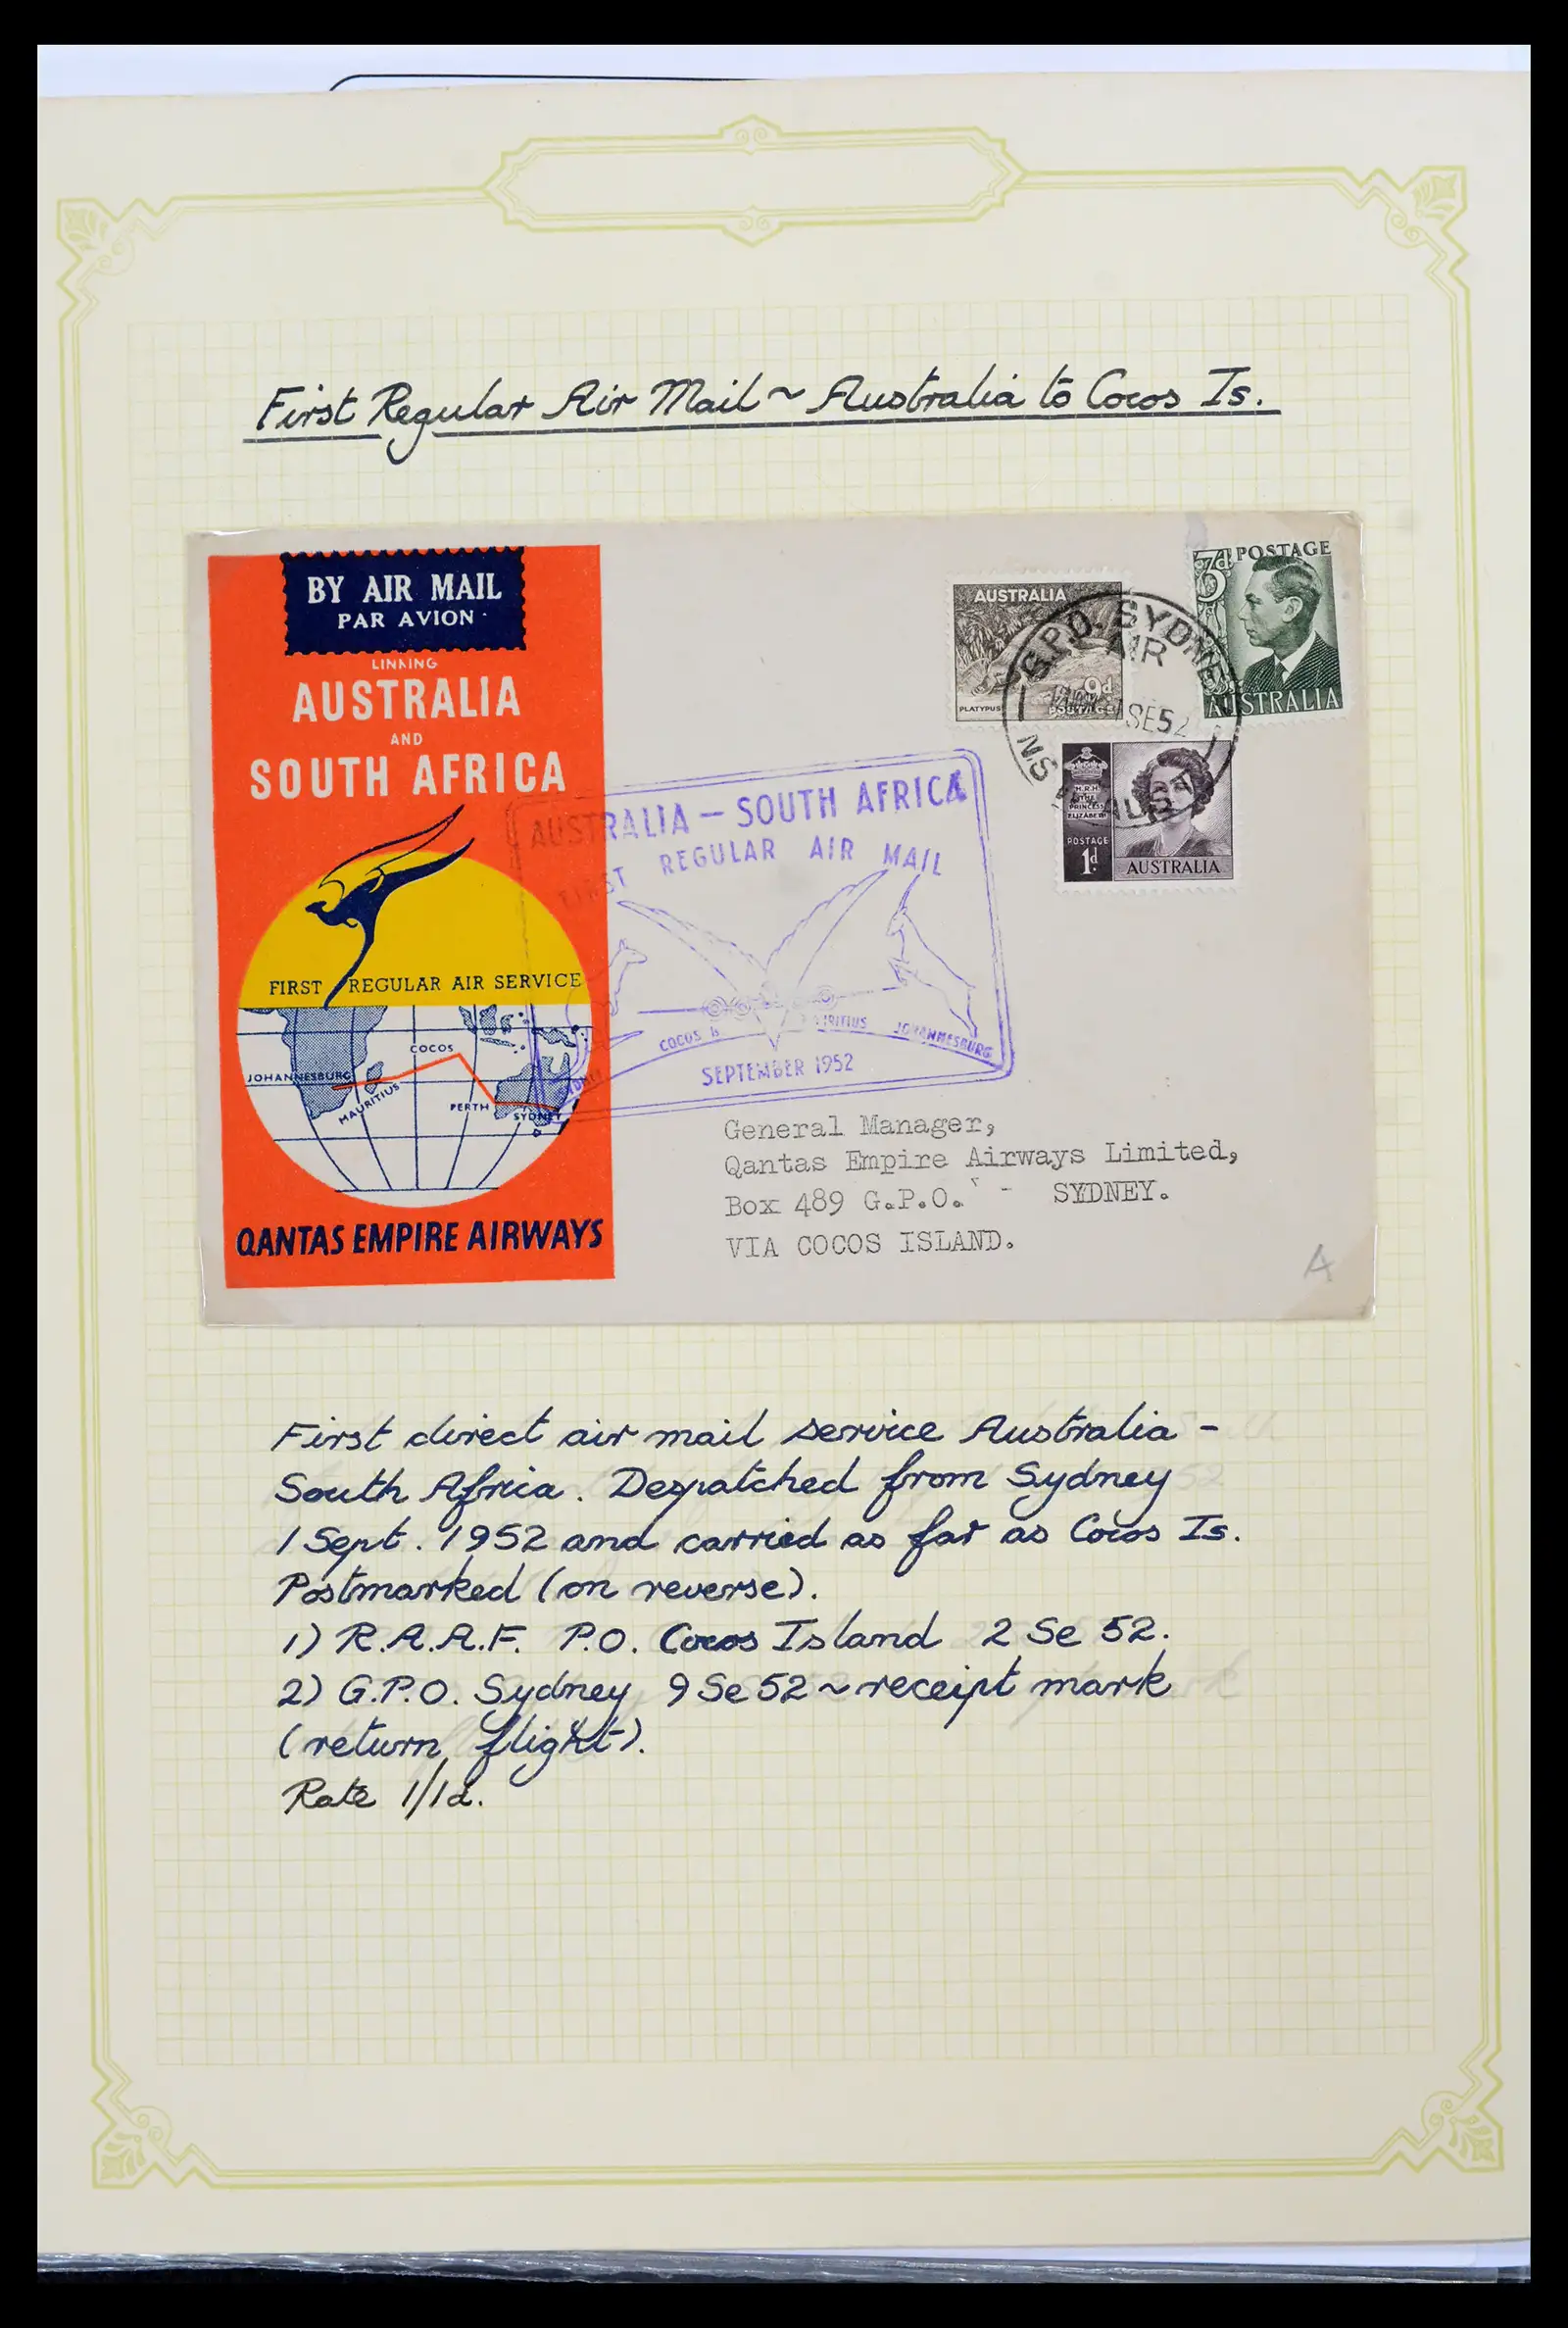 First Regular Air Mail ~ Australia to Cocos Is.
BY AIR MAIL
PAR AVION
LINKING
AUSTRALIA
AND
SOUTH AFRICA
FIRST REGULAR AIR SERVICE
COCOS
JOHANNESBURG
MAURITIUS
PERTH
SYDNEY
QANTAS EMPIRE AIRWAYS
AUSTRALIA
9d
PLATYPUS
POSTAGE
3d POSTAGE
AUSTRALIA
G.P.O. SYDNEY
AIR
1SE52
N.S.W. AUST
H.R.H.
THE
PRINCESS
ELIZABETH
POSTAGE
1d
AUSTRALIA
AUSTRALIA – SOUTH AFRICA
FIRST REGULAR AIR MAIL
SYDNEY COCOS Is MAURITIUS JOHANNESBURG
SEPTEMBER 1952
General Manager,
Qantas Empire Airways Limited,
Box 489 G.P.O. - SYDNEY.
VIA COCOS ISLAND.
A
First direct air mail service Australia -
South Africa. Despatched from Sydney
1 Sept. 1952 and carried as far as Cocos Is.
Postmarked (on reverse).
1) R.A.A.F. P.O. Cocos Island 2 Se 52.
2) G.P.O. Sydney 9 Se 52 ~ receipt mark
(return flight).
Rate 1/1d.